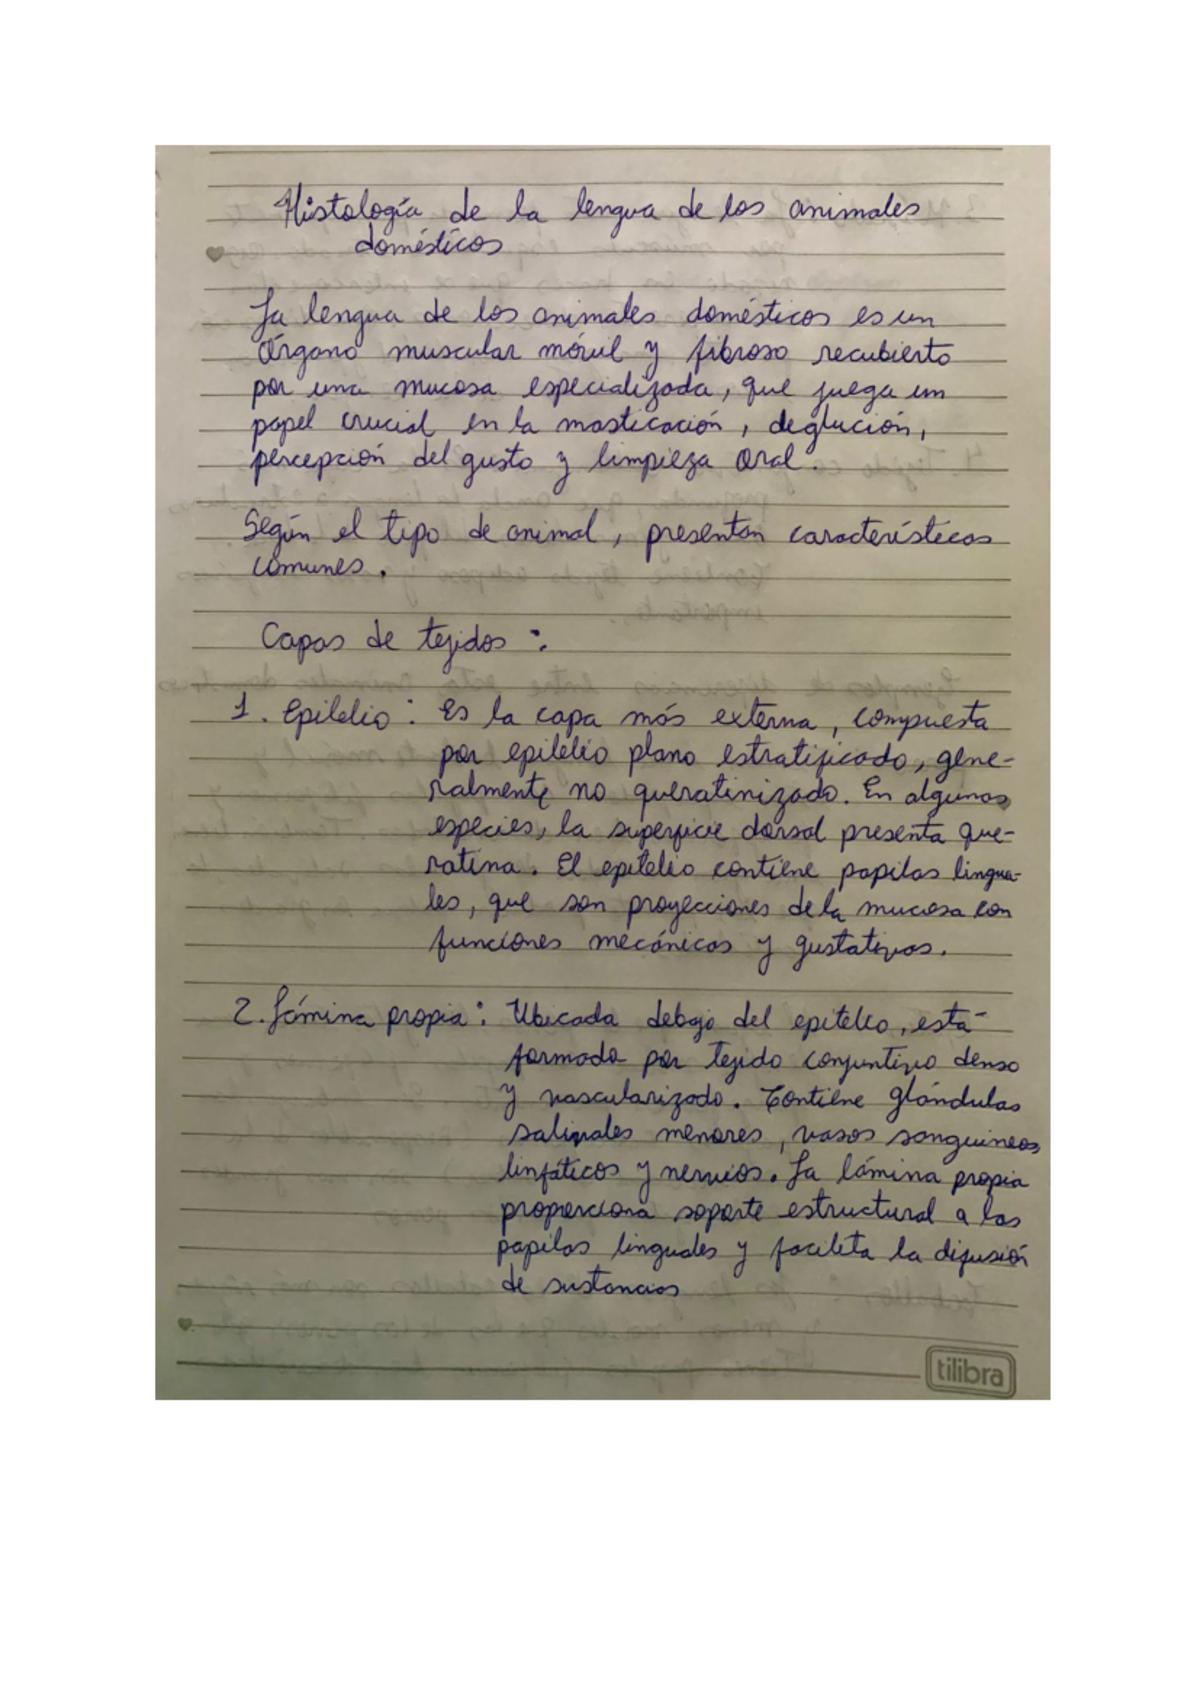 Histología de la lengua de los animales
domésticos
La lengua de los animales domésticos es un
órgano muscular móvil y fibroso recubierto
por una mucosa especializada, que juega un
papel crucial en la masticación, deglución,
percepción del gusto y limpieza oral.
Según el tipo de animal, presentan características
comunes.
Capas de tejidos:
1. Epitelio: Es la capa más externa, compuesta
por epitelio plano estratificado, gene-
ralmente no queratinizado. En algunas
especies, la superficie dorsal presenta que-
ratina. El epitelio contiene papilas lingua-
les, que son proyecciones de la mucosa con
funciones mecánicas y gustativas.
2. Lámina propia: Ubicada debajo del epitelio, está
formada por tejido conjuntivo denso
y vascularizado. Contiene glándulas
salivales menores, vasos sanguineos,
linfáticos y nervios. La lámina propia
proporciona soporte estructural a las
papilas linguales y facilita la difusión
de sustancias
tilibra